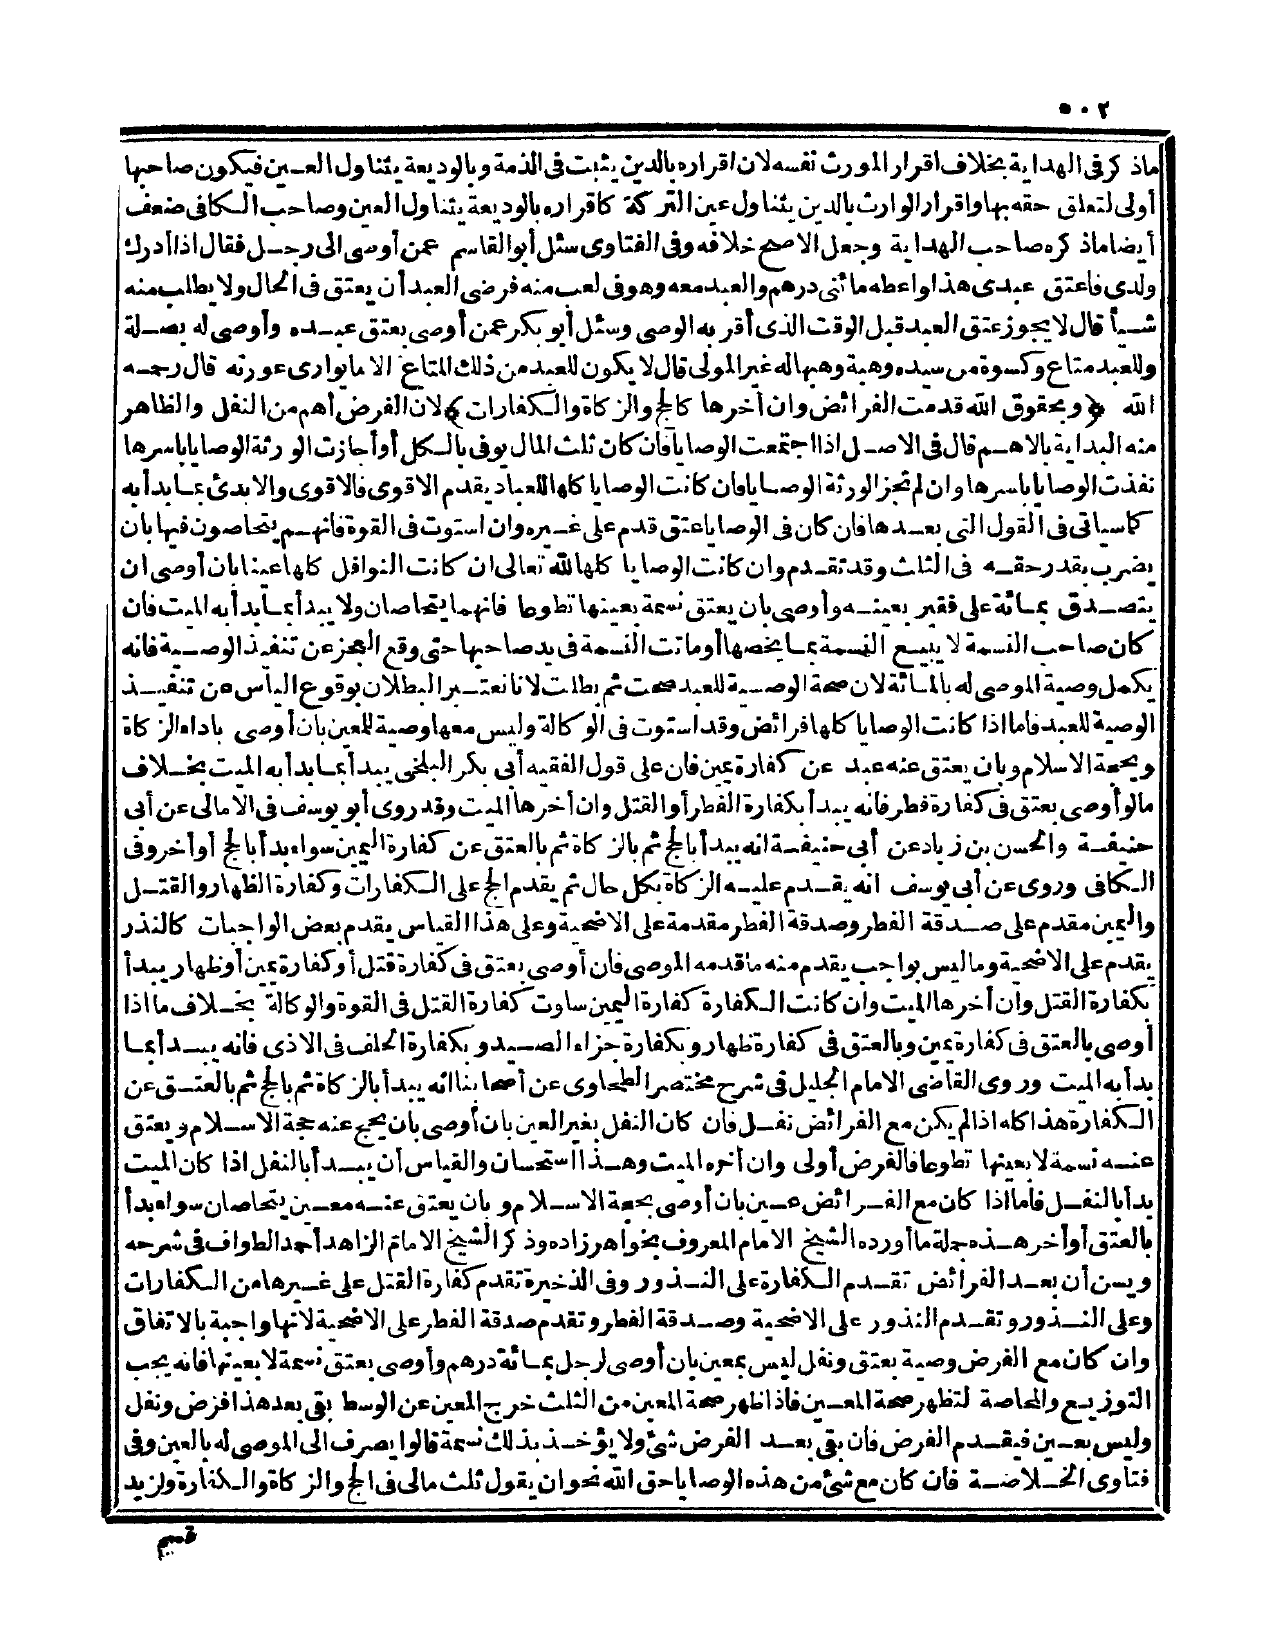 ٥٠٢
ماذكر فى الهداية بخلاف اقرار المورث نفسه لان اقراره بالدين يثبت فى الذمة وبالوديعة يتناول العين فيكون صاحبها
أولى لتعلق حقه بها واقرار الوارث بالدين يتناول عين التركة كاقراره بالوديعة يتناول العين وصاحب الكافى ضعف
أيضا ماذكره صاحب الهداية وجعل الاصح خلافه وفى الفتاوى سئل أبو القاسم عمن أوصى الى رجل فقال اذا أدرك
ولدى فاعتق عبدى هذا واعطه مائتى درهم والعبد معه وهو فى لعب منه فرضى العبد أن يعتق فى الحال ولا يطلب منه
شيأ قال لا يجوز عتق العبد قبل الوقت الذى أقر به الوصى وسئل أبو بكر عمن أوصى بعتق عبده وأوصى له بصلة
وللعبد متاع وكسوة من سيده وهبة وهبها له غير المولى قال لا يكون للعبد من ذلك المتاع الا ما يوارى عورته قال رحمه
الله ﴿وبحقوق الله قدمت الفرائض وان أخرها كالحج والزكاة والكفارات﴾ لان الفرض أهم من النفل والظاهر
منه البداية بالاهم قال فى الاصل اذا اجتمعت الوصايا فان كان ثلث المال يوفى بالكل أو أجازت الورثة الوصايا باسرها
نفذت الوصايا باسرها وان لم تجز الورثة الوصايا فان كانت الوصايا كلها للعباد يقدم الاقوى فالاقوى والا بدئ بما بدأ به
كماسياتى فى القول التى بعدها فان كان فى الوصايا عتق قدم على غيره وان استوت فى القوة فانهم يتحاصون فيها بان
يضرب بقدر حقه فى الثلث وقد تقدم وان كانت الوصايا كلها لله تعالى ان كانت النوافل كلها عينا بان أوصى ان
يتصدق بمائة على فقير بعينه وأوصى بان يعتق نسمة بعينها تطوعا فانهما يتحاصان ولا يبدأ بما بدأ به الميت فان
كان صاحب النسمة لا يبيع النسمة بما يخصها أو ماتت النسمة فى يد صاحبها حتى وقع العجز عن تنفيذ الوصية فانه
يكمل وصية الموصى له بالمائة لان صحة الوصية للعبد صحت ثم بطلت لانا نعتبر البطلان بوقوع الياس من تنفيذ
الوصية للعبد فاما اذا كانت الوصايا كلها فرائض وقد استوت فى الوكالة وليس معها وصية للعين بان أوصى باداء الزكاة
وبحجة الاسلام وبان يعتق عنه عبد عن كفارة يمين فان على قول الفقيه أبى بكر البلخى يبدأ بما بدأ به الميت بخلاف
مالو أوصى بعتق فى كفارة فطر فانه يبدأ بكفارة الفطر أو القتل وان أخرها الميت وقد روى أبو يوسف فى الامالى عن أبى
حنيفة والحسن بن زياد عن أبى حنيفة انه يبدأ بالحج ثم بالزكاة ثم بالعتق عن كفارة اليمين سواء بدأ بالحج أو أخر وفى
الكافى وروى عن أبى يوسف انه يقدم عليه الزكاة بكل حال ثم يقدم الحج على الكفارات وكفارة الظهار والقتل
واليمين مقدم على صدقة الفطر وصدقة الفطر مقدمة على الاضحية وعلى هذا القياس يقدم بعض الواجبات كالنذر
يقدم على الاضحية وماليس بواجب يقدم منه ماقدمه الموصى فان أوصى بعتق فى كفارة قتل أو كفارة يمين أو ظهار يبدأ
بكفارة القتل وان أخرها الميت وان كانت الكفارة كفارة اليمين ساوت كفارة القتل فى القوة والوكالة بخلاف ما اذا
أوصى بالعتق فى كفارة يمين وبالعتق فى كفارة ظهار وبكفارة جزاء الصيد وبكفارة الحلف فى الاذى فانه يبدأ بما
بدأ به الميت وروى القاضى الامام الجليل فى شرح مختصر الطحاوى عن أصحابنا انه يبدأ بالزكاة ثم بالحج ثم بالعتق عن
الكفارة هذا كله اذا لم يكن مع الفرائض نفل فان كان النفل بغير العين بان أوصى بان يحج عنه حجة الاسلام ويعتق
عنه نسمة لا بعينها تطوعا فالفرض أولى وان أخره الميت وهذا استحسان والقياس أن يبدأ بالنفل اذا كان الميت
بدأ بالنفل فاما اذا كان مع الفرائض عين بان أوصى بحجة الاسلام وبان يعتق عنه معين يتحاصان سواء بدأ
بالعتق أو أخر هذه جملة ما أورده الشيخ الامام المعروف بخواهر زاده وذكر الشيخ الامام الزاهد أحمد الطواف فى شرحه
ويسن أن بعد الفرائض تقدم الكفارة على النذور وفى الذخيرة تقدم كفارة القتل على غيرها من الكفارات
وعلى النذور وتقدم النذور على الاضحية وصدقة الفطر وتقدم صدقة الفطر على الاضحية لانها واجبة بالاتفاق
وان كان مع الفرض وصية بعتق ونفل ليس بمعين بان أوصى لرجل بمائة درهم وأوصى بعتق نسمة لا بعينها فانه يجب
التوزيع والمحاصة لتظهر صحة المعين فاذا ظهر صحة المعين من الثلث خرج المعين عن الوسط بقى بعد هذا فرض ونفل
وليس بعين فيقدم الفرض فان بقى بعد الفرض شئ ولا يؤخذ بذلك نسمة قالوا يصرف الى الموصى له بالعين وفى
فتاوى الخلاصة فان كان مع شئ من هذه الوصايا حق الله نحو ان يقول ثلث مالى فى الحج والزكاة والكفارة ولزيد
قسم